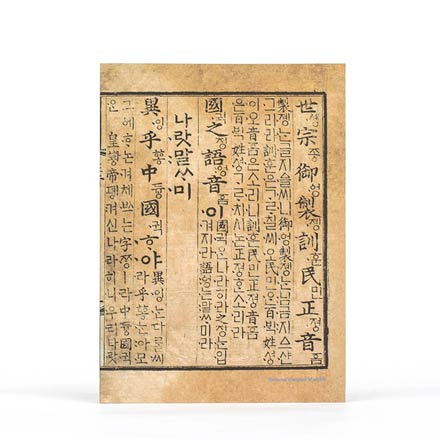 世솅宗조ᇰ御ᅌᅥᆼ製졩訓훈民민正져ᇰ音ᅙᅳᆷ
製졩는글지ᅀᅳᆯ씨니御ᅌᅥᆼ製졩는님금지ᅀᅳ샨
그리라訓훈은ᄀᆞᄅᆞ칠씨오民민ᄋᆞᆫ百ᄇᆡᆨ姓셔ᇰ
이오音ᅙᅳᆷ은소리니訓훈民민正져ᇰ音ᅙᅳᆷ
은百ᄇᆡᆨ姓셔ᇰᄀᆞᄅᆞ치시논正져ᇰᄒᆞᆫ소리라
國귁之징語ᅌᅥᆼ音ᅙᅳᆷ이
國귁ᄋᆞᆫ나라히라之징는입
겨지라語ᅌᅥᆼ는말ᄊᆞ미라
나랏말ᄊᆞ미
異잉乎ᅘᅩᆼ中듀ᇰ國귁ᄒᆞ야
異잉는다ᄅᆞᆯ씨
라乎ᅘᅩᆼ는아모
그ᅌᅦᄒᆞ논겨체ᄡᅳ는字ᄍᆞᆼㅣ라中듀ᇰ國귁
은皇ᅘᅪᇰ帝뎽겨신나라히니우리나랏
National Hangeul Museum